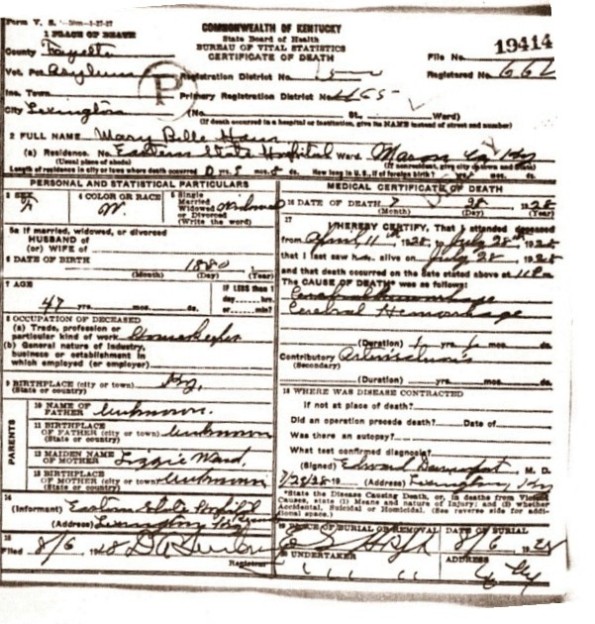 Form V. S.
COMMONWEALTH OF KENTUCKY
State Board of Health
BUREAU OF VITAL STATISTICS
CERTIFICATE OF DEATH
1 PLACE OF DEATH
County Fayette
File No. 19414
Vot. Pct. Asylum
P
Registration District No.
Registered No. 662
Inc. Town
Primary Registration District No.
City Lexington (No. St., Ward)
(If death occurred in a hospital or institution, give its NAME instead of street and number)
2 FULL NAME Mary Belle
(a) Residence. No. Eastern State Hospital Ward. Mason Co Ky
(Usual place of abode) (If nonresident, give city or town and State)
Length of residence in city or town where death occurred yrs. mos. ds. How long in U.S., if of foreign birth? yrs. mos. ds.
PERSONAL AND STATISTICAL PARTICULARS
3 SEX F
4 COLOR OR RACE W.
5 Single Married Widowed or Divorced (Write the word) Widowed
5a If married, widowed, or divorced
HUSBAND of
(or) WIFE of
6 DATE OF BIRTH 1880
(Month) (Day) (Year)
7 AGE
47 yrs. mos. ds.
IF LESS than 1 day hrs. or min.?
8 OCCUPATION OF DECEASED
(a) Trade, profession or particular kind of work Housekeeper
(b) General nature of industry, business or establishment in which employed (or employer)
9 BIRTHPLACE (city or town) Ky.
(State or country)
PARENTS
10 NAME OF FATHER unknown.
11 BIRTHPLACE OF FATHER (city or town) unknown
(State or country)
12 MAIDEN NAME OF MOTHER Lizzie Ward.
13 BIRTHPLACE OF MOTHER (city or town) unknown
(State or country)
14
(Informant) Eastern State Hospital
(Address) Lexington Ky
15
Filed 8/6 1928
Registrar
MEDICAL CERTIFICATE OF DEATH
16 DATE OF DEATH 7 28 1928
(Month) (Day) (Year)
17
I HEREBY CERTIFY, That I attended deceased
from April 11th 1928, to July 28th 1928
that I last saw h alive on July 28 1928
and that death occurred on the date stated above at 11 P.m.
The CAUSE OF DEATH was as follows:
Cerebral Hemorrhage
Cerebral Hemorrhage
(Duration) yrs. mos. ds.
Contributory
(Secondary)
(Duration) yrs. mos. ds.
18 WHERE WAS DISEASE CONTRACTED
If not at place of death?
Did an operation precede death? Date of
Was there an autopsy?
What test confirmed diagnosis?
(Signed) Edward Davenport, M. D.
7/28/28 19 (Address) Lexington, Ky
*State the Disease Causing Death, or, in deaths from Violent Causes, state (1) Means and nature of Injury; and (2) whether Accidental, Suicidal or Homicidal. (See reverse side for additional space.)
19 PLACE OF BURIAL OR REMOVAL
DATE OF BURIAL
E S Hosp 8/6 1928
20 UNDERTAKER
ADDRESS